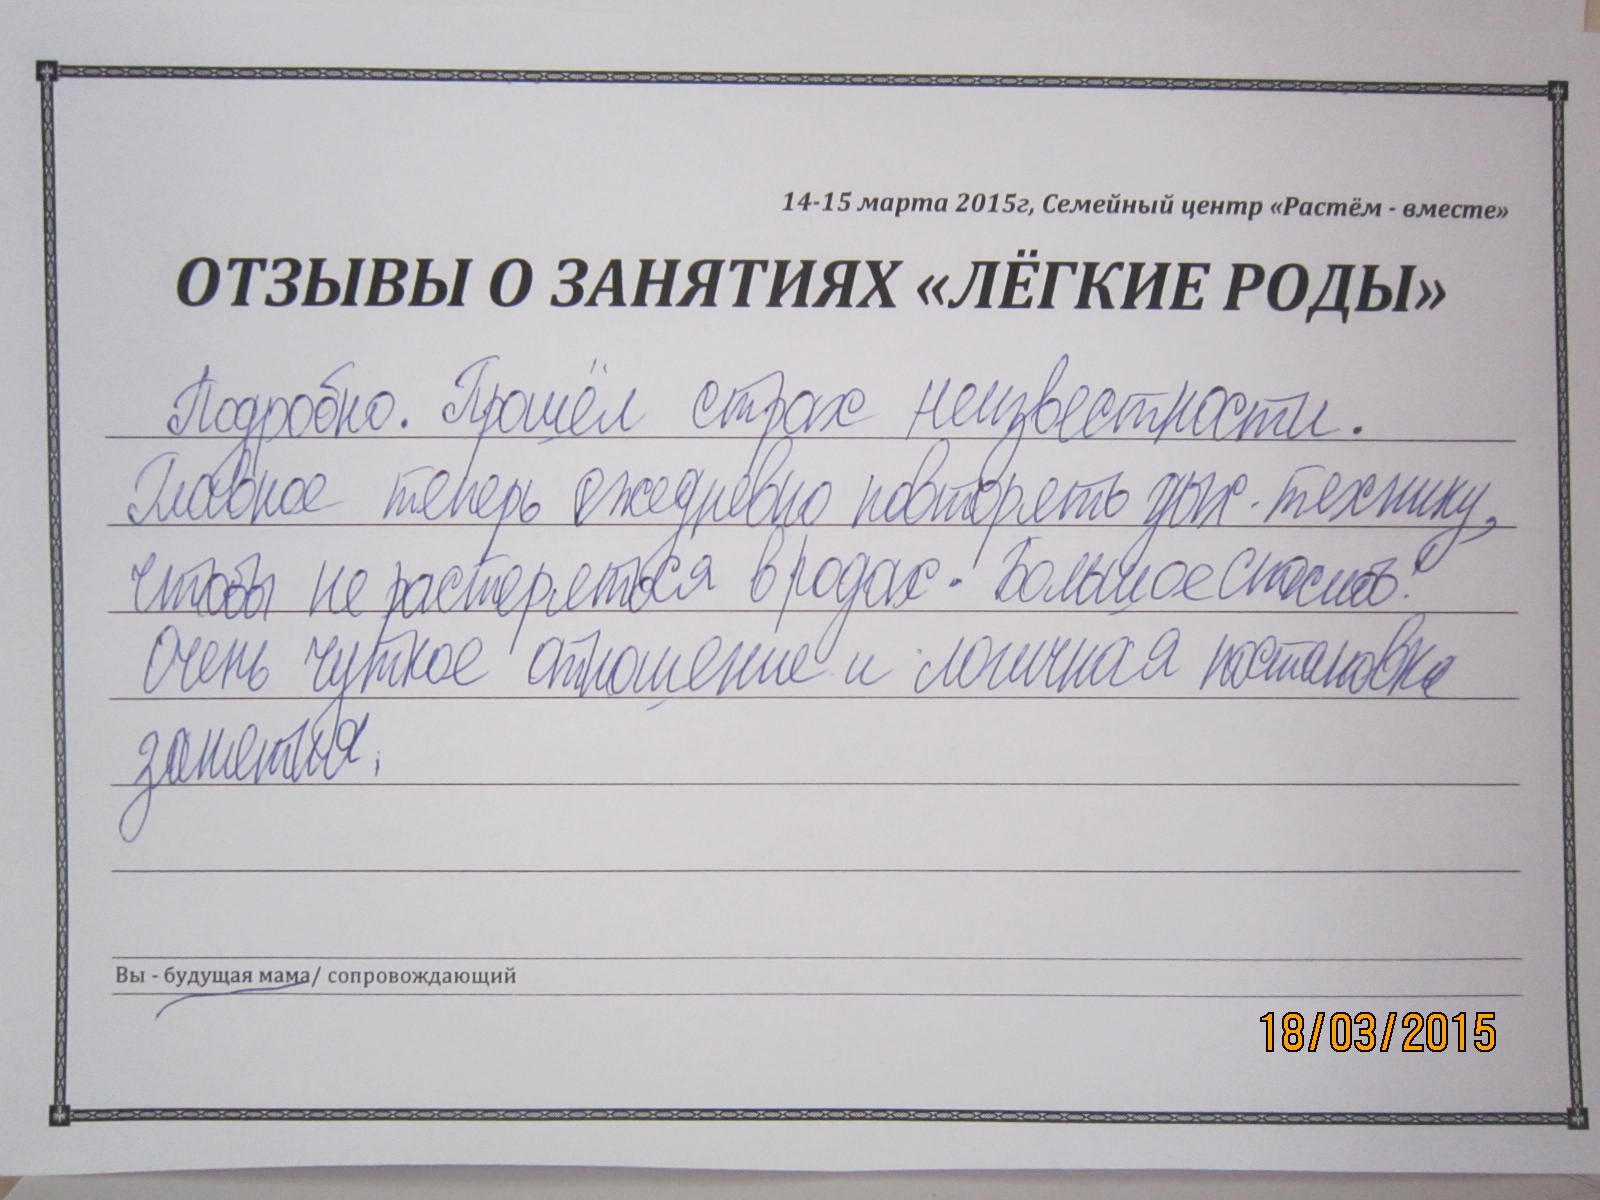 14-15 марта 2015г, Семейный центр «Растём - вместе»
ОТЗЫВЫ О ЗАНЯТИЯХ «ЛЁГКИЕ РОДЫ»
Подробно. Прошёл страх неизвестности.
Главное теперь ежедневно повторять дых. технику,
чтобы не растеряться в родах. Большое спасибо!
Очень чуткое отношение и логичная постановка
занятия.
Вы - будущая мама/ сопровождающий
18/03/2015